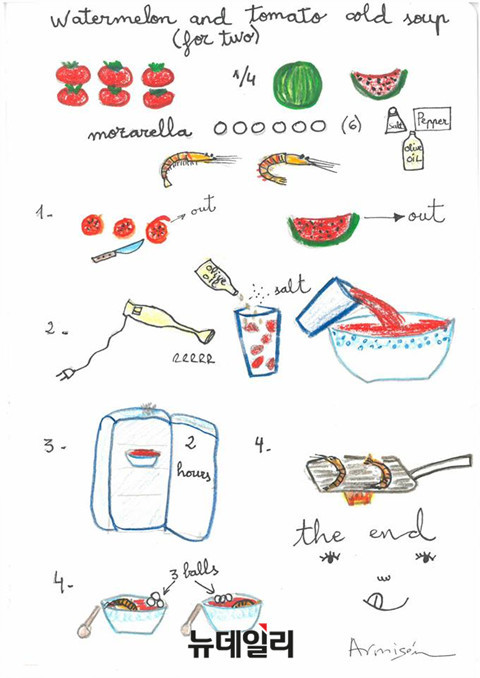 Watermelon and tomato cold soup
(for two)
1/4
mozarella (6)
salt
Pepper
olive OIL
1- out
out
2-
olive oil
salt
RRRRR
3-
2 hours
4-
the end
4-
3 balls
뉴데일리
Armisén